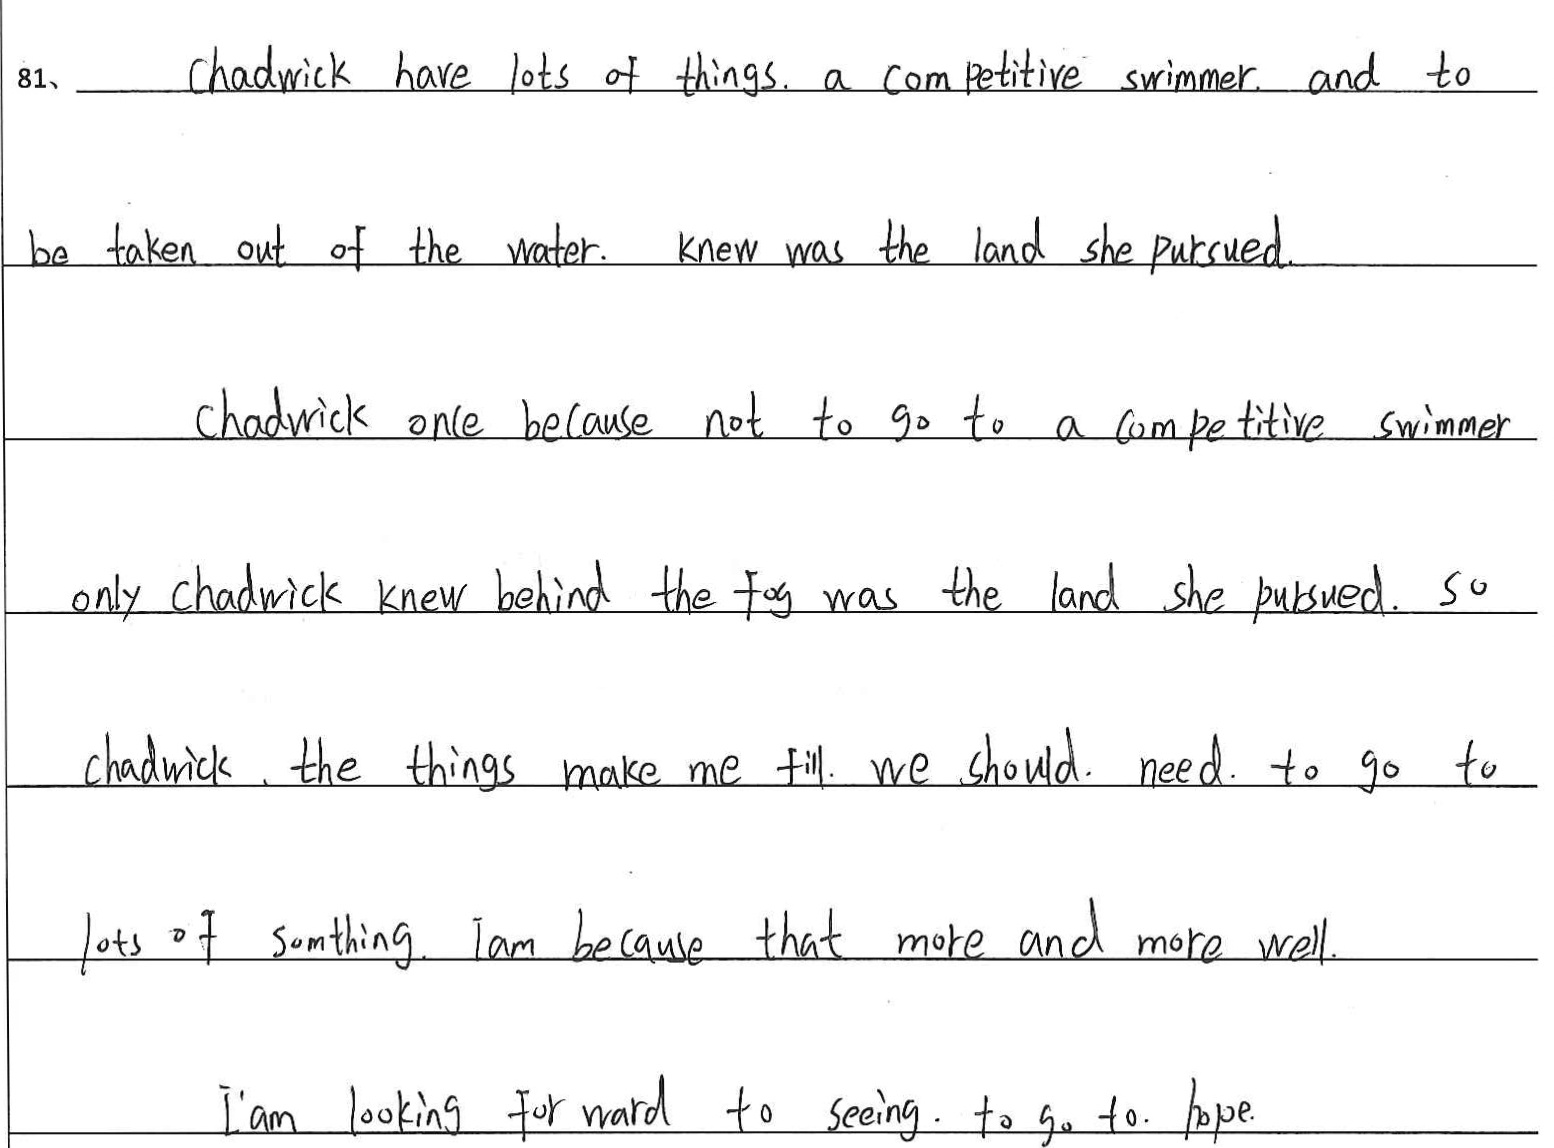 81、 Chadwick have lots of things. a competitive swimmer. and to
be taken out of the water. Knew was the land she pursued.
Chadwick once because not to go to a competitive swimmer
only Chadwick knew behind the fog was the land she pursued. so
chadwick. the things make me fill. we should. need. to go to
lots of somthing. I am because that more and more well.
I'am looking forward to seeing. to go to. hope.